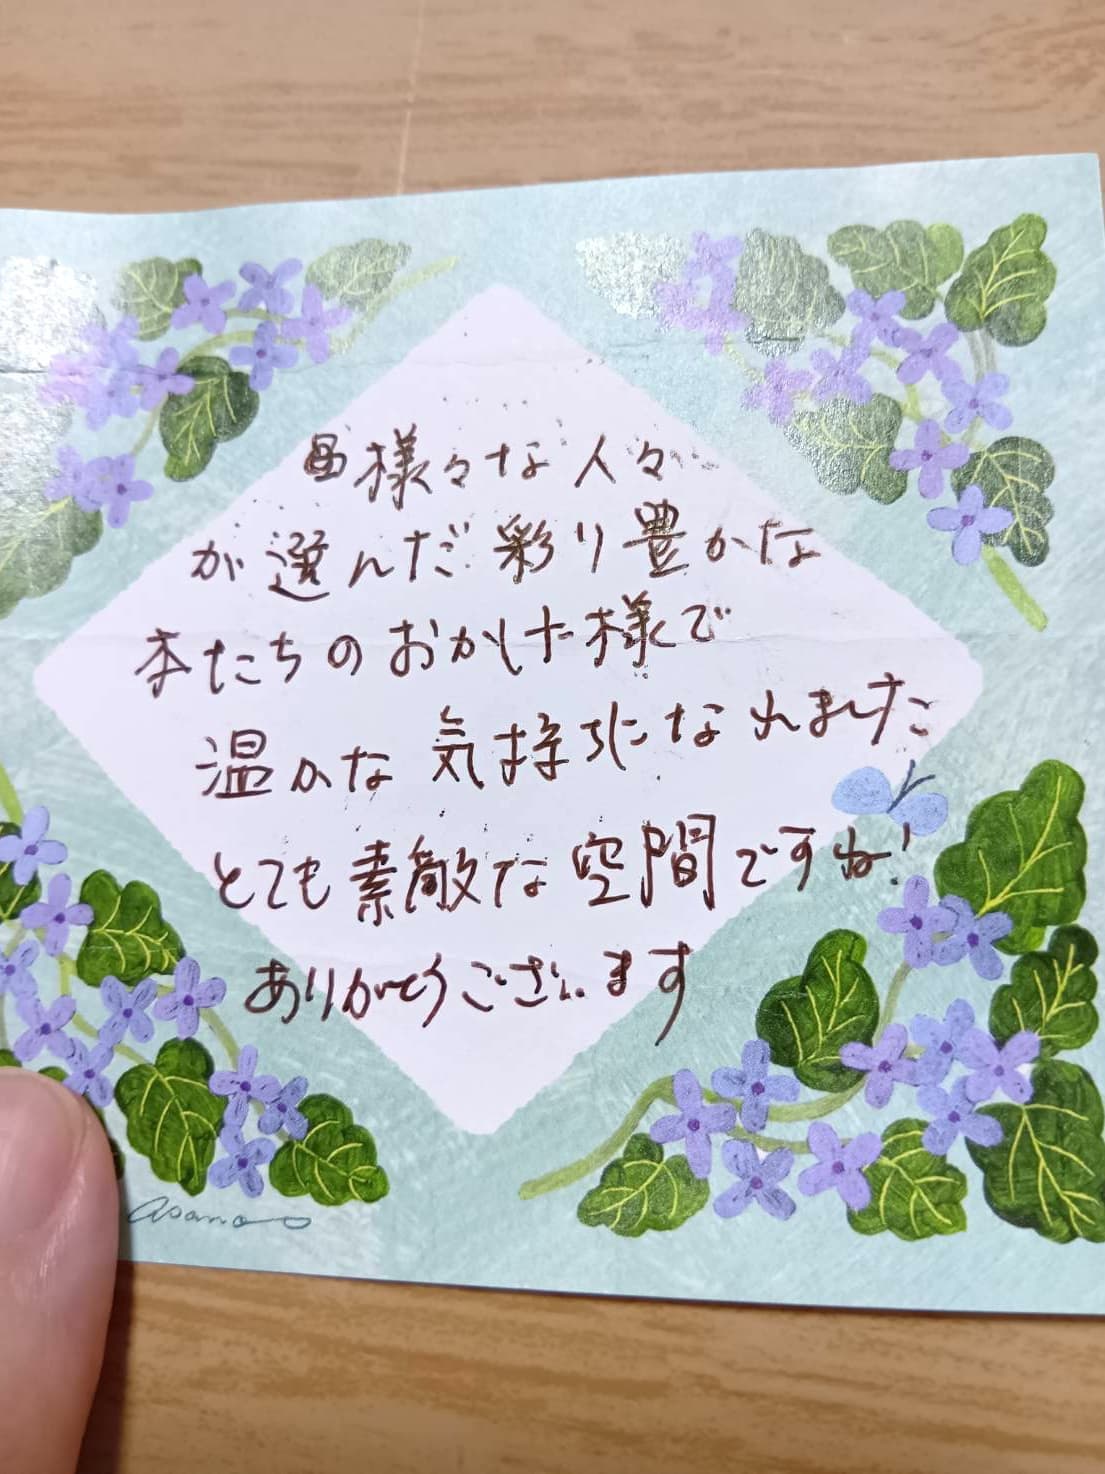 様々な人々
が選んだ彩り豊かな
本たちのおかげ様で
温かな気持ちになれました
とても素敵な空間ですね!
ありがとうございます
asano